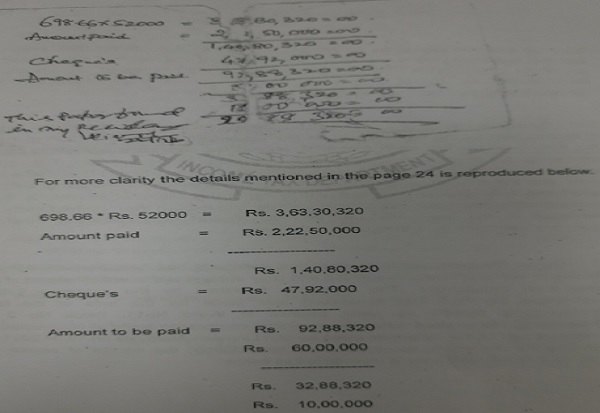 698.66 x 52000 = 3 80,320 = 00
Amount paid = 2, 50,000 = 00
1,40,80,320 = 00
Cheque's 47,92,000 = 00
Amount to be paid 92,88,320 = 00
00 000 = 00
88 320 = 00
00 000 = 00
This
in my
INCOME TAX DEPARTMENT
For more clarity the details mentioned in the page 24 is reproduced below.
698.66 * Rs. 52000 = Rs. 3,63,30,320
Amount paid = Rs. 2,22,50,000
--------------------
Rs. 1,40,80,320
Cheque's = Rs. 47,92,000
--------------------
Amount to be paid = Rs. 92,88,320
Rs. 60,00,000
--------------------
Rs. 32,88,320
Rs. 10,00,000